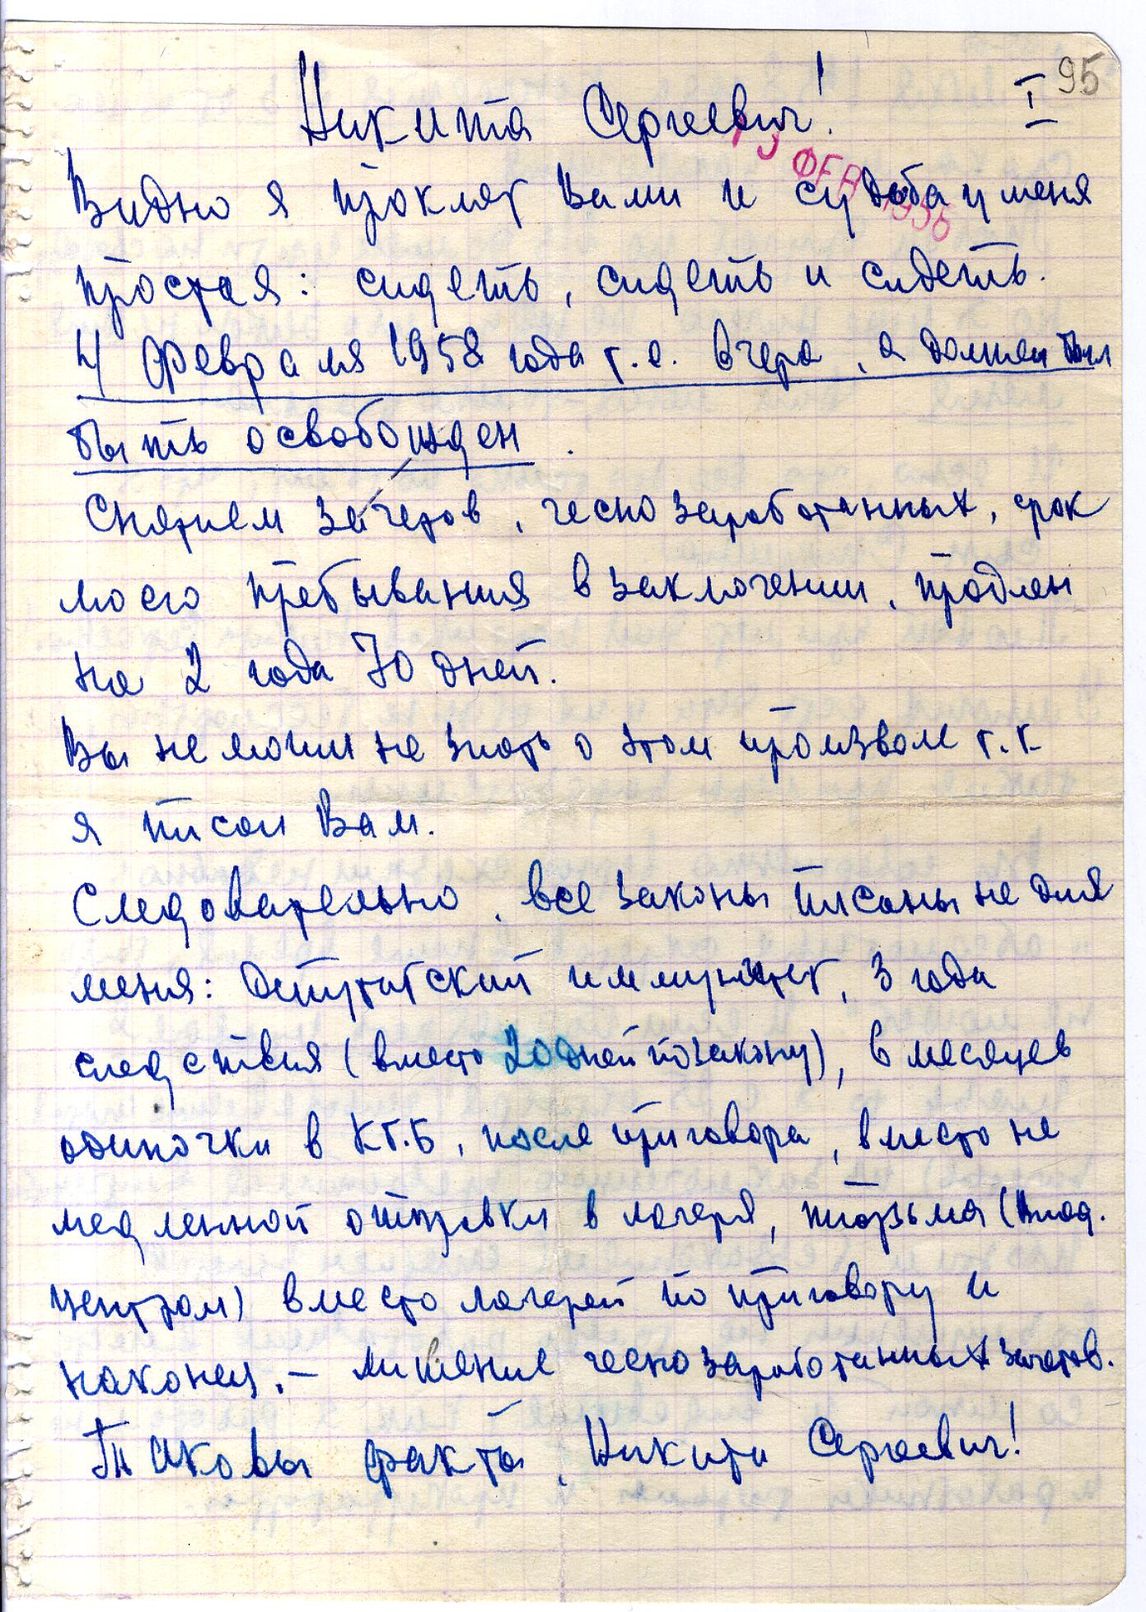 95
I
Никита Сергеевич!
13 ФЕВ 1958
Видно я проклят Вами и судьба у меня
простая: сидеть, сидеть и сидеть.
4 февраля 1958 года т.е. вчера, я должен был
быть освобожден.
Снятием зачетов, чесно заработанных, срок
моего пребывания в заключении, продлен
на 2 года 70 дней.
Вы не могли не знать о этом произволе т.к.
я писал Вам.
Следовательно, все законы писаны не для
меня: Депутатский иммунитет, 3 года
следствия (вместо 20 дней по закону), 6 месяцев
одиночки в КГ.Б, после приговора, вместо не
медленной отправки в лагеря, тюрьма (Влад.
централ) вместо лагерей по приговору и
наконец, – лишение чесно заработанных зачетов.
Таковы факты, Никита Сергеевич!